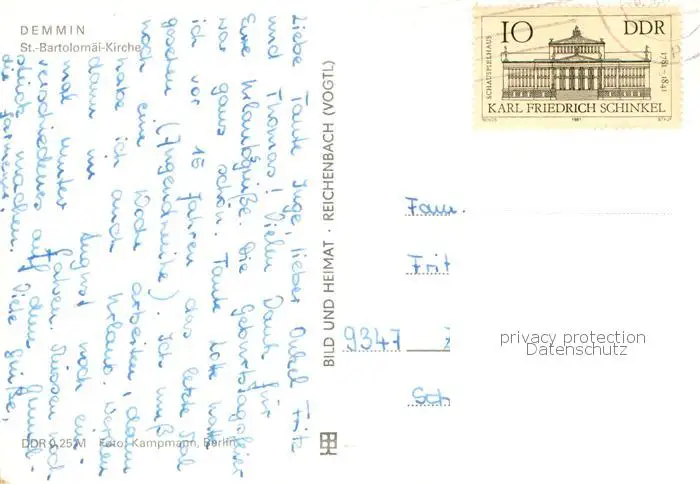 DEMMIN
St.-Bartolomäi-Kirche
Liebe Tante Inge, lieber Onkel Fritz
und Thomas! Vielen Dank für
Eure Urlaubsgrüße. Die Geburtstagsfeier
war ganz schön. Tante Lotte hatte
ich vor 15 Jahren das letzte Mal
gesehen (Jugendweihe). Ich muß
noch eine Woche arbeiten, dann
habe ich auch Urlaub. Werden
dann im August noch ein
mal runter fahren. Müssen noch
verschiedenes auf dem Grund-
stück machen. Viele Grüße,
die
DDR 0,25 M Foto: Kampmann, Berlin
BILD UND HEIMAT · REICHENBACH (VOGTL)
10 DDR
SCHAUSPIELHAUS
1781-1841
KARL FRIEDRICH SCHINKEL
1981
Fam.
Frit
9347
Sch
privacy protection
Datenschutz